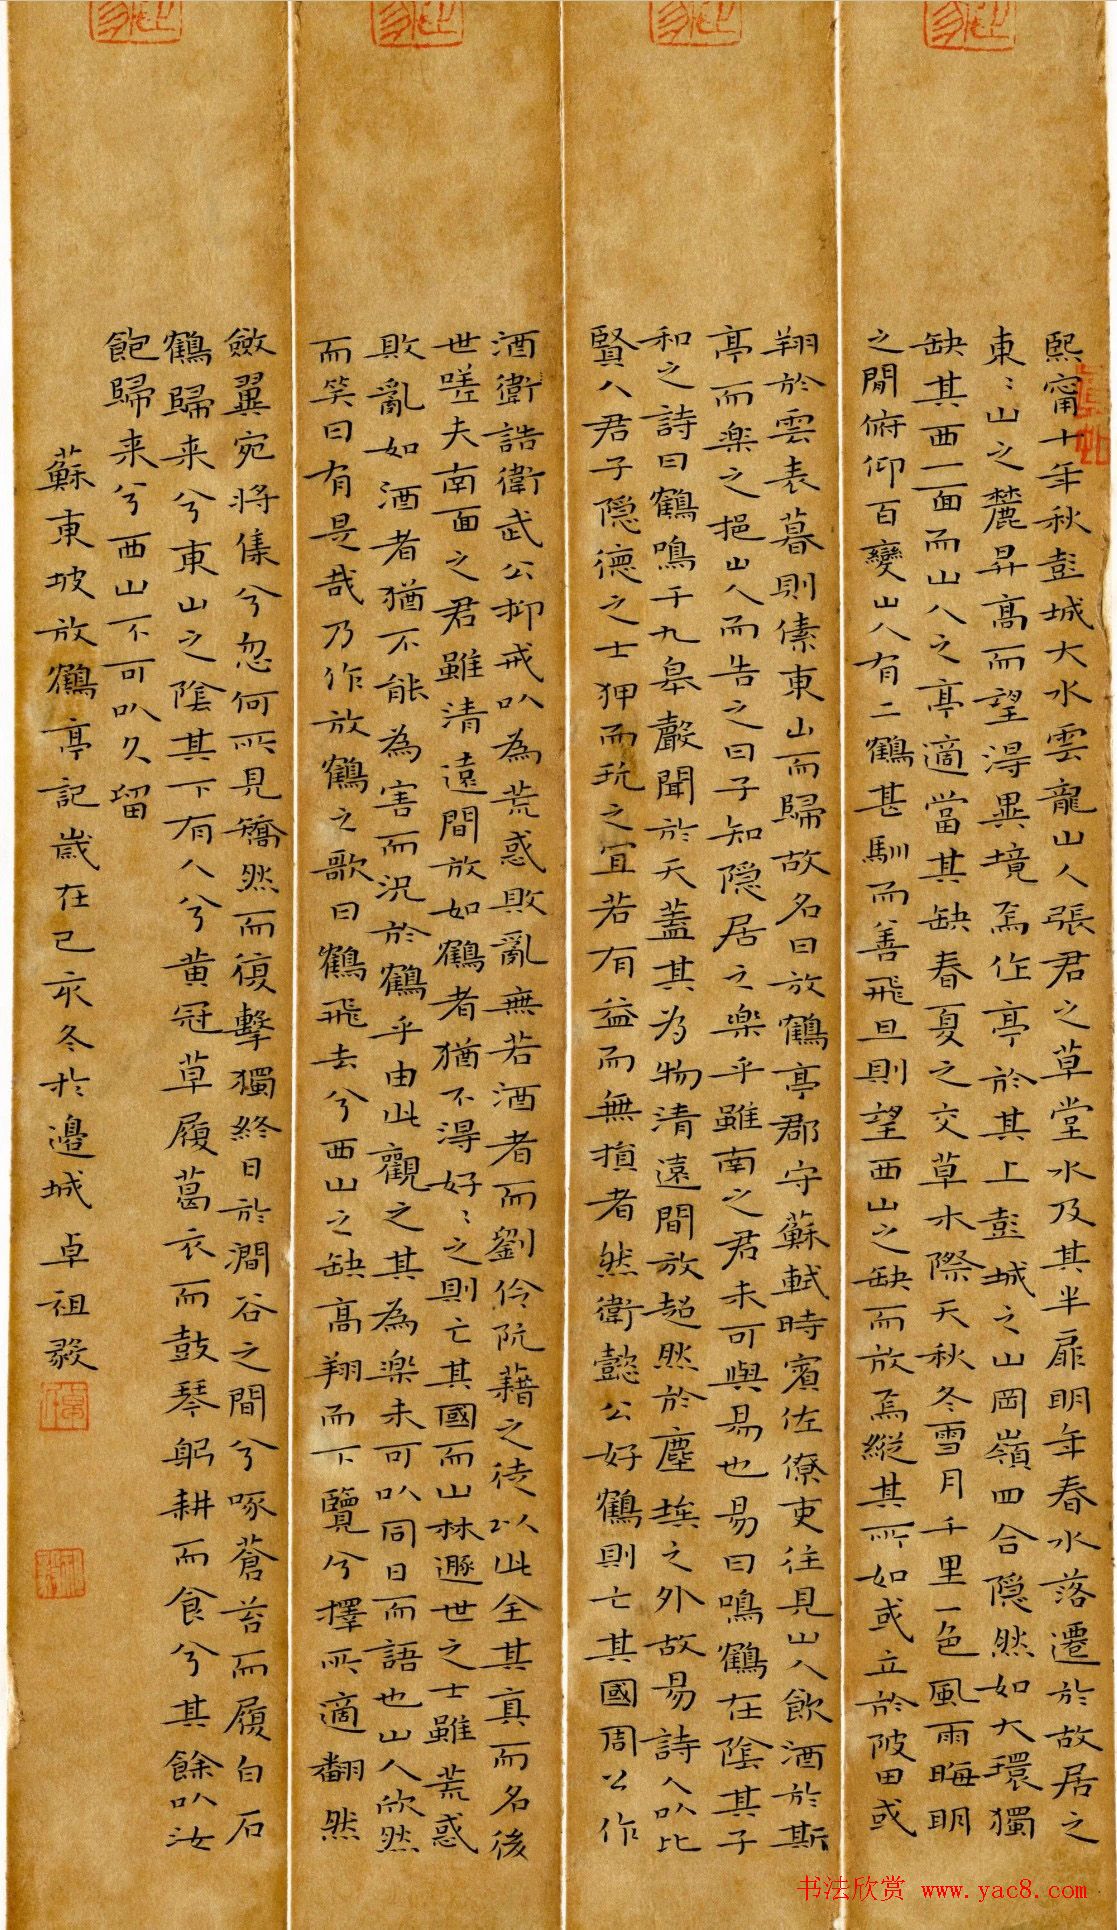 熙甯十年秋彭城大水雲龍山人張君之草堂水及其半扉明年春水落遷於故居之
東〻山之麓昇高而望得異境焉作亭於其上彭城之山岡嶺四合隱然如大環獨
缺其西一面而山人之亭適當其缺春夏之交草木際天秋冬雪月千里一色風雨晦明
之間俯仰百變山人有二鶴甚馴而善飛旦則望西山之缺而放焉縱其所如或立於陂田或
翔於雲表暮則傃東山而歸故名曰放鶴亭郡守蘇軾時賓佐僚吏往見山人飲酒於斯
亭而樂之挹山人而告之曰子知隱居之樂乎雖南之君未可與易也易曰鳴鶴在陰其子
和之詩曰鶴鳴于九皋聲聞於天蓋其為物清遠閒放超然於塵埃之外故易詩人以比
賢人君子隱德之士狎而玩之宜若有益而無損者然衛懿公好鶴則亡其國周公作
酒衛誥衛武公抑戒以為荒惑敗亂無若酒者而劉伶阮藉之徒以此全其真而名後
世嗟夫南面之君雖清遠閒放如鶴者猶不得好〻之則亡其國而山林遯世之士雖荒惑
敗亂如酒者猶不能為害而況於鶴乎由此觀之其為樂未可以同日而語也山人欣然
而笑曰有是哉乃作放鶴之歌曰鶴飛去兮西山之缺高翔而下覽兮擇所適翻然
斂翼宛將集兮忽何所見矯然而復擊獨終日於澗谷之間兮啄蒼苔而履白石
鶴歸来兮東山之陰其下有人兮黄冠草履葛衣而鼓琴躬耕而食兮其餘以汝
飽歸来兮西山不可以久留
蘇東坡放鶴亭記歲在己亥冬於邉城卓祖毅
书法欣赏 www.yac8.com